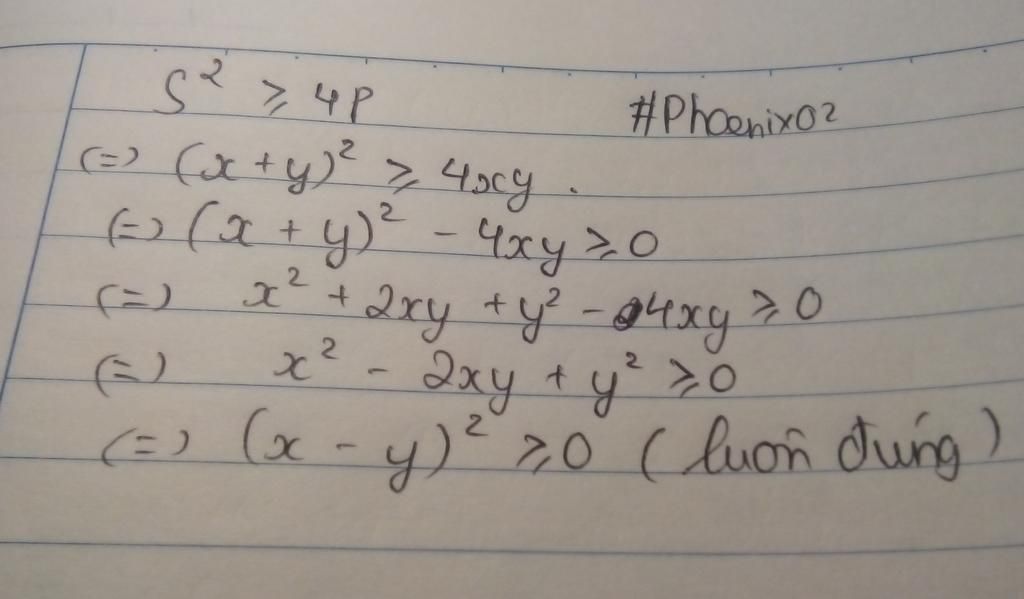 S² ≥ 4P #Phoenix02
(=) (x + y)² ≥ 4xy.
(=) (x + y)² - 4xy ≥ 0
(=) x² + 2xy + y² - 4xy ≥ 0
(=) x² - 2xy + y² ≥ 0
(=) (x - y)² ≥ 0 (luôn đúng)